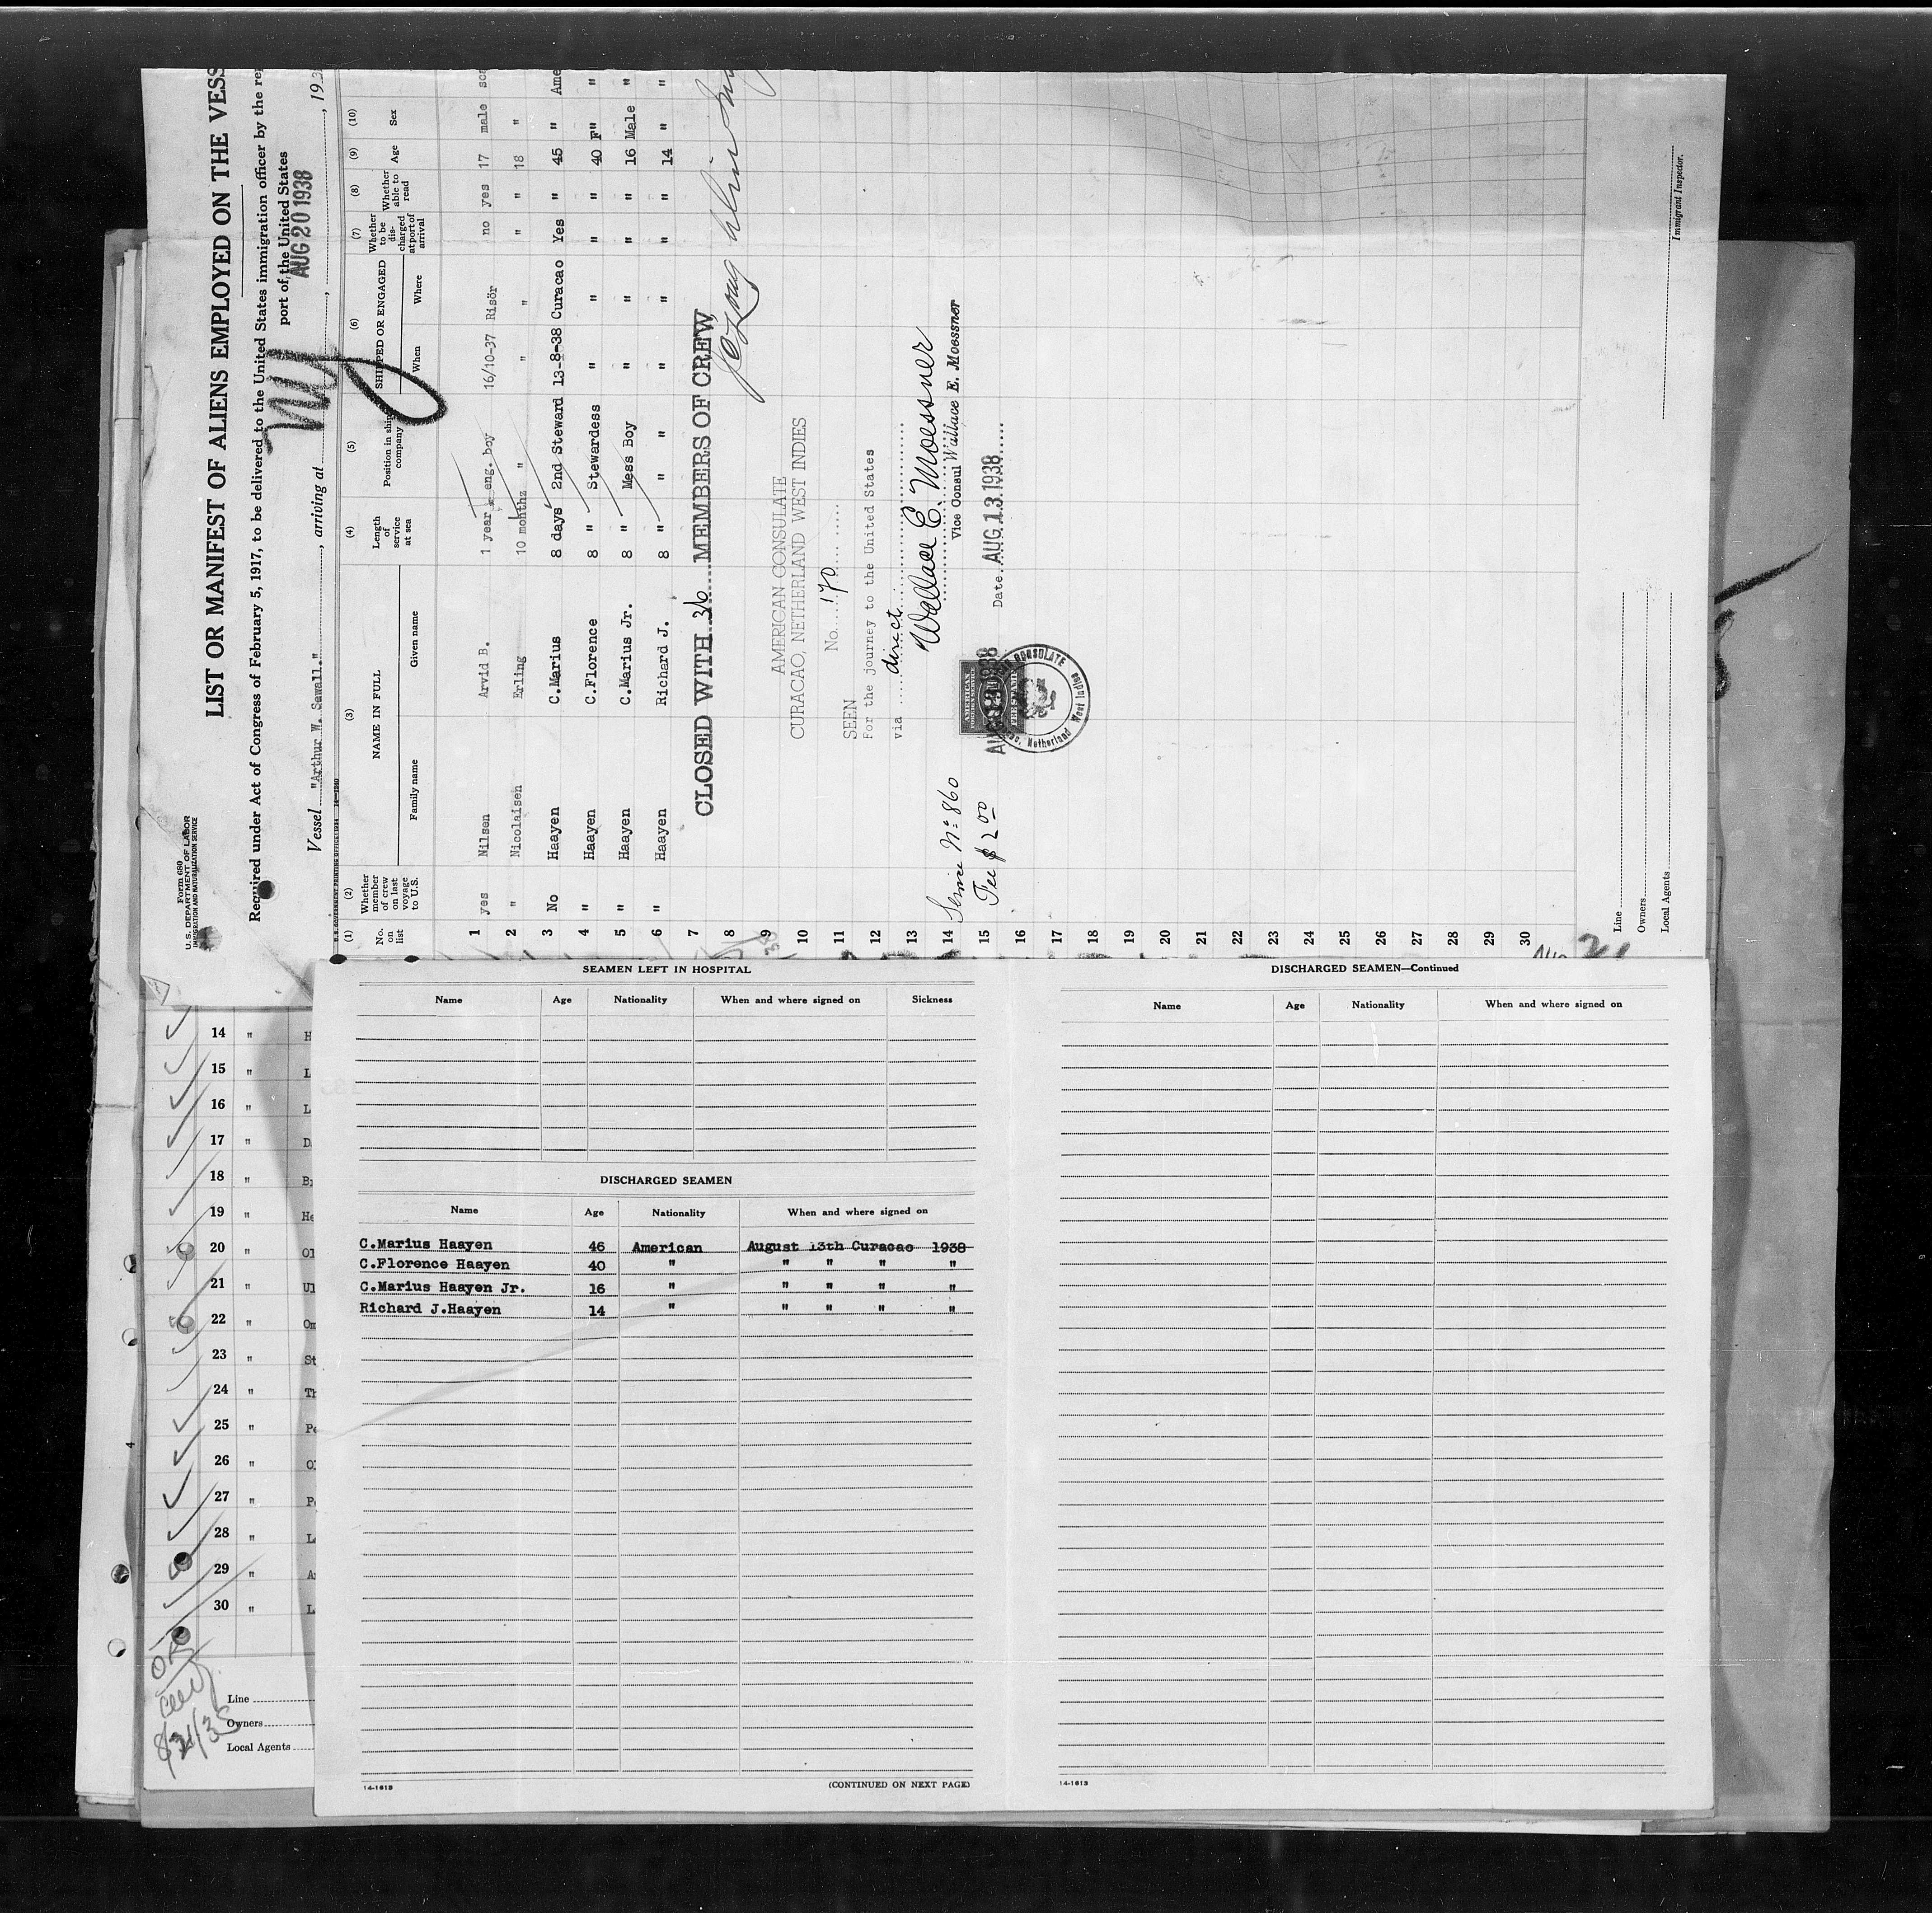 Form 680
U.S. DEPARTMENT OF LABOR
IMMIGRATION AND NATURALIZATION SERVICE
LIST OR MANIFEST OF ALIENS EMPLOYED ON THE VESS
Required under Act of Congress of February 5, 1917, to be delivered to the United States immigration officer by the re
port of the United States
AUG 20 1938
Vessel "Arthur W. Sewall.", arriving at , , 193
(1) (2) (3) (4) (5) (6) (7) (8) (9) (10)
No. on list
Whether member of crew on last voyage to U.S.
NAME IN FULL
Family name Given name
Length of service at sea
Position in ship company
SHIPPED OR ENGAGED
When Where
Whether to be discharged at port of arrival
Whether able to read
Age
Sex
1 yes Nilsen Arvid B. 1 year eng. boy 16/10-37 Risör no yes 17 male sca
2 " Nicolaisen Erling 10 months " " " " " 18 "
3 No Haayen C.Marius 8 days 2nd Steward 13-8-38 Curacao Yes " 45 " Ame
4 " Haayen C.Florence 8 " Stewardess " " " " 40 F" "
5 " Haayen C.Marius Jr. 8 " Mess Boy " " " " 16 Male "
6 " Haayen Richard J. 8 " " " " " " " 14 " "
7 CLOSED WITH 36 MEMBERS OF CREW
8
9
10 AMERICAN CONSULATE
CURACAO, NETHERLAND WEST INDIES
11 No. 170
SEEN
12 For the journey to the United States
via direct
13 Wallace E. Moessner
14 Service No. 860
Vice Consul Wallace E. Moessner
15 Fee $ 2 00
Date AUG.13.1938
AMERICAN
FOREIGN SERVICE
FEE STAMP
CONSULATE
Netherland West Indies
16
17
18
19
20
21
22
23
24
25
26
27
28
29
30
Line
Owners
Local Agents
Immigrant Inspector.
14 " H
15 " L
16 " L
17 " D
18 " Br
19 " He
20 " Ol
21 " Ul
22 " Om
23 " St
24 " Th
25 " Pe
26 " Ol
27 " Pe
28 " Le
29 " A
30 " L
OK
Line
Owners
Local Agents
4
SEAMEN LEFT IN HOSPITAL
Name Age Nationality When and where signed on Sickness
DISCHARGED SEAMEN
Name Age Nationality When and where signed on
C.Marius Haayen 46 American August 13th Curacao 1938
C.Florence Haayen 40 " " " " "
C.Marius Haayen Jr. 16 " " " " "
Richard J.Haayen 14 " " " " "
14-1613 (CONTINUED ON NEXT PAGE)
DISCHARGED SEAMEN—Continued
Name Age Nationality When and where signed on
14-1613